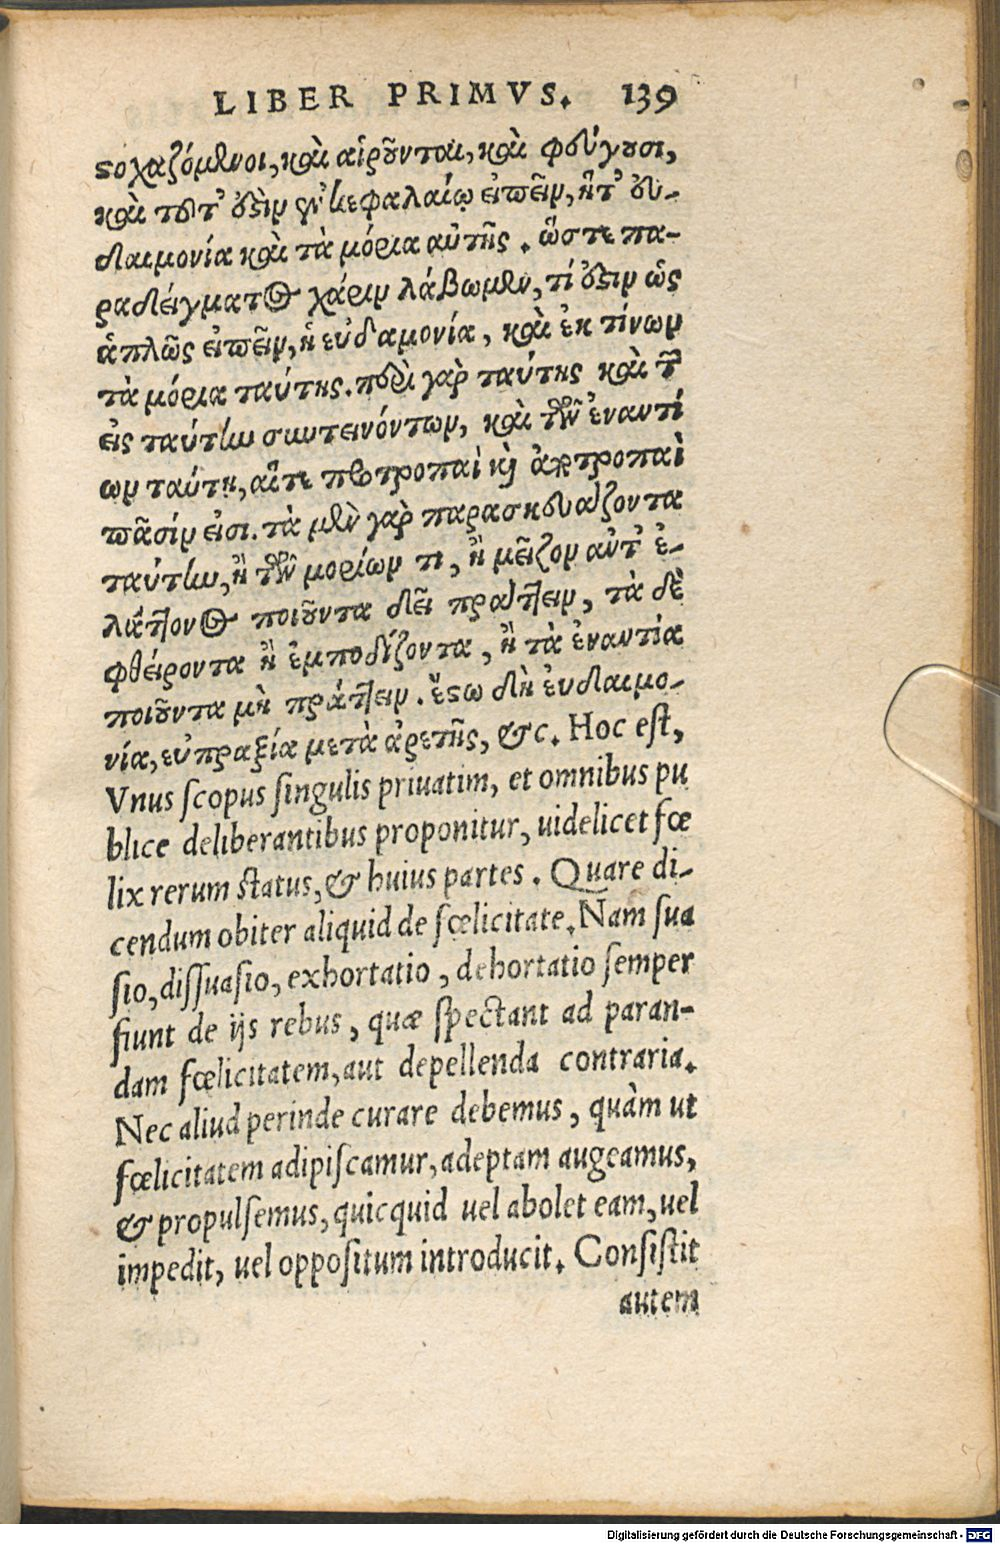 LIBER PRIMVS. 139
στοχαζόμενοι, καὶ αἱροῦνται, καὶ φεύγουσι,
καὶ τοῦτ' ὅξιν ἐν κεφαλαίῳ εἰπεῖν, ἥτ' εὐ-
δαιμονία καὶ τὰ μόρια αὐτῆς. ὥστε πα-
ραδείγματος χάριν λάβωμεν, τί ὅξιν ὡς
ἁπλῶς εἰπεῖν, ἡ εὐδαμονία, καὶ ἐκ τίνων
τὰ μόρια ταύτης. περὶ γὰρ ταύτης καὶ τῶν
εἰς ταύτην συντεινόντων, καὶ τῶν ἐναντί
ων ταύτῃ, αἵτε προτροπαὶ καὶ ἀποτροπαὶ
πᾶσίν εἰσι. τὰ μὲν γὰρ παρασκευάζοντα
ταύτην, ἢ τῶν μορίων τι, ἢ μεῖζον αὐτ' ἐ-
λάττονος ποιοῦντα δεῖ πράττειν, τὰ δὲ
φθείροντα ἢ ἐμποδίζοντα, ἢ τὰ ἐναντία
ποιοῦντα μὴ πράττειν. ἔστω δὴ ἐυδαιμο-
νία, εὐπραξία μετὰ ἀρετῆς, &c. Hoc est,
Vnus scopus singulis priuatim, et omnibus pu
blice deliberantibus proponitur, uidelicet fœ
lix rerum status, & huius partes. Quare di-
cendum obiter aliquid de fœlicitate. Nam sua
sio, dissuasio, exhortatio, dehortatio semper
fiunt de ijs rebus, quæ spectant ad paran-
dam fœlicitatem, aut depellenda contraria.
Nec aliud perinde curare debemus, quàm ut
fœlicitatem adipiscamur, adeptam augeamus,
& propulsemus, quicquid uel abolet eam, uel
impedit, uel oppositum introducit. Consistit
autem
Digitalisierung gefördert durch die Deutsche Forschungsgemeinschaft - DFG